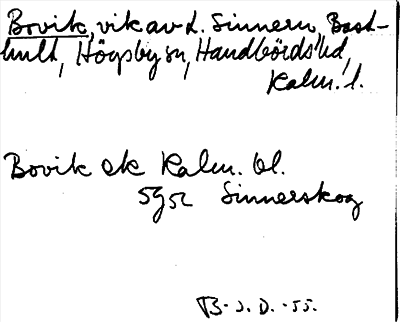 Bovik, vik av L. Sinnern, Bast-
hult, Högsby sn, Handbörds hd,
Kalm. l.
Bovik ek Kalm. bl.
59 52 Sinnerskog
B. J. D. -55.